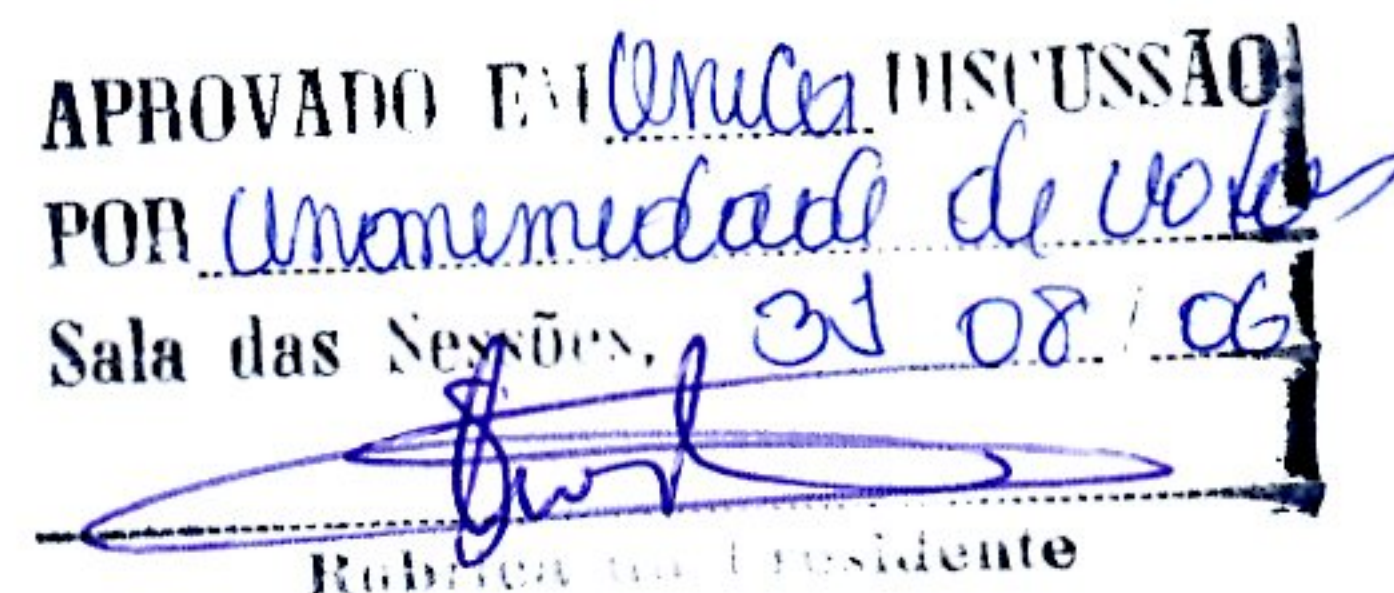 APROVADO EM Unica DISCUSSÃO
POR Unanimidade de votos
Sala das Sessões, 31 08 / 06
Rubrica do Presidente